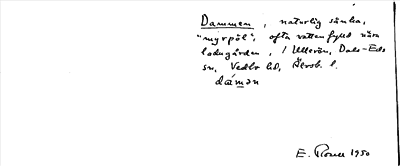 Dammen, naturlig sänka,
"myrpöl", ofta vattenfylld nära
ladugården, i Ullerön, Dals-Eds
sn, Vedbo hd, Älvsb. l.
dámən
E. 1950